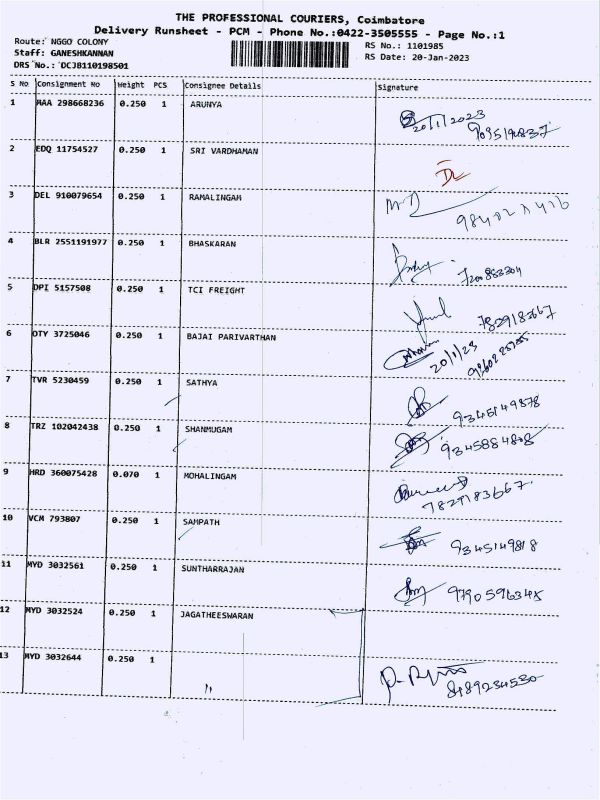 THE PROFESSIONAL COURIERS, Coimbatore
Delivery Runsheet - PCM - Phone No.:0422-3505555 - Page No.:1
Route: NGGO COLONY
RS No.: 1101985
Staff: GANESHKANNAN
RS Date: 20-Jan-2023
DRS No.: DCJB110198501
S No Consignment No Height PCS Consignee Details Signature
1 MAA 298668236 0.250 1 ARUNYA
20/1/2023
2 EDQ 11754527 0.250 1 SRI VARDHAMAN
3 DEL 910079654 0.250 1 RAMALINGAM
4 BLR 2551191977 0.250 1 BHASKARAN
5 DPI 5157508 0.250 1 TCI FREIGHT
7829183667
6 OTY 3725046 0.250 1 BAJAI PARIVARTHAN
20/1/23
7 TVR 5230459 0.250 1 SATHYA
9345149878
8 TRZ 102042438 0.250 1 SHANMUGAM
9345884808
9 HRD 360075428 0.070 1 MOHALINGAM
7829183667
10 VCM 793807 0.250 1 SAMPATH
9345149818
11 MYD 3032561 0.250 1 SUNTHARRAJAN
9790596345
12 MYD 3032524 0.250 1 JAGATHEESWARAN
13 MYD 3032644 0.250 1 "
8489234530